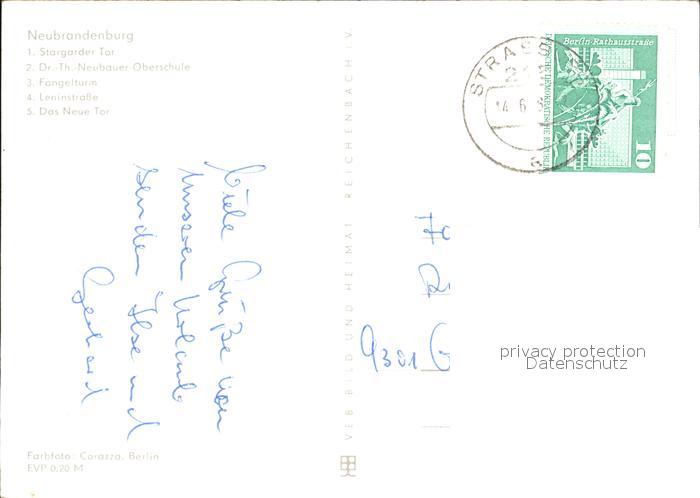 Neubrandenburg
1. Stargarder Tor
2. Dr.-Th.-Neubauer-Oberschule
3. Fangelturm
4. Leninstraße
5. Das Neue Tor
Viele Grüße von
unserem Urlaub
senden Ilse und
Gerhard
Farbfoto: Corazza, Berlin
EVP 0,20 M
VEB BILD UND HEIMAT REICHENBACH i. V.
STRASS
14. 6.
Berlin-Rathausstraße
DEUTSCHE DEMOKRATISCHE REPUBLIK
10
9301
privacy protection
Datenschutz